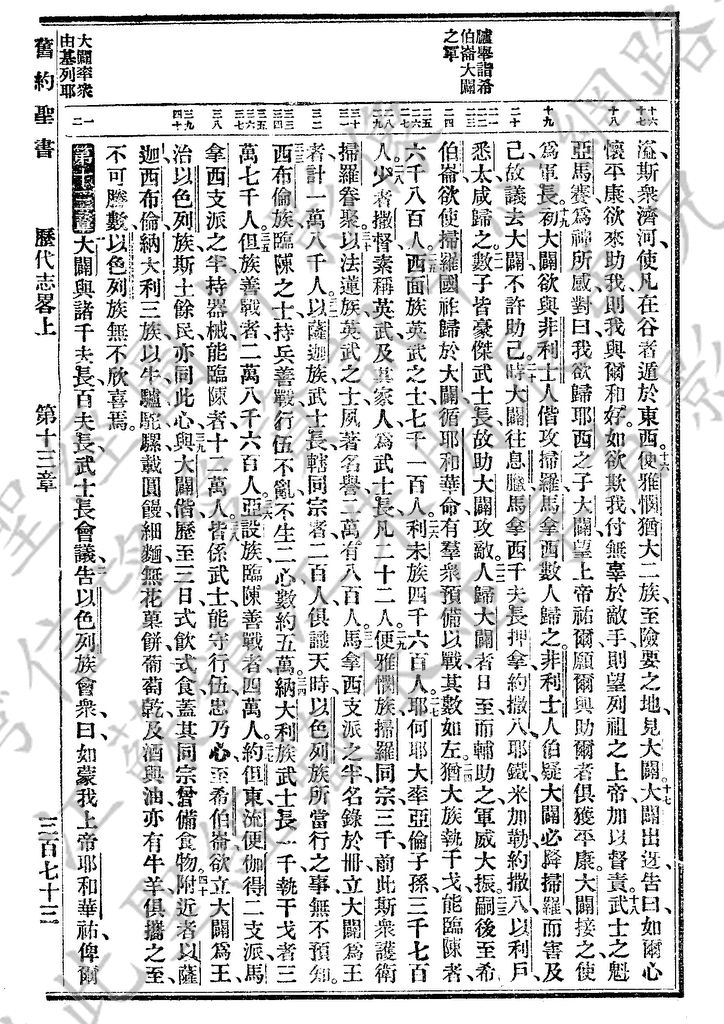 舊約聖書
歷代志畧上
第十三章
三百七十三
臚舉詣希
伯崙大闢
之軍
大闢率衆
由基列耶
溢斯衆濟河使凡在谷者遁於東西便雅憫猶大二族至險要之地見大闢大闢出迓告曰如爾心
懷平康欲來助我則我與爾和好如欲欺我付無辜於敵手則望列祖之上帝加以督責武士之魁
亞馬賽爲神所感對曰我欲歸耶西之子大闢望上帝祐爾願爾與助爾者俱獲平康大闢接之使
爲軍長初大闢欲與非利士人偕攻掃羅馬拿西數人歸之非利士人伯疑大闢必降掃羅而害及
己故議去大闢不許助己時大闢往息臘馬拿西千夫長押拿約撒八耶鐵米加勒約撒八以利戶
悉太咸歸之數子皆豪傑武士長故助大闢攻敵人歸大闢者日至而輔助之軍威大振嗣後至希
伯崙欲使掃羅國祚歸於大闢循耶和華命有羣衆預備以戰其數如左猶大族執干戈能臨陳者
六千八百人西面族英武之士七千一百人利未族四千六百人耶何耶大率亞倫子孫三千七百
人少者撒督素稱英武及其家人爲武士長凡二十二人便雅憫族掃羅同宗三千前此斯衆護衛
掃羅眷聚以法蓮族英武之士夙著名譽二萬有八百人馬拿西支派之半名錄於册立大闢爲王
者計一萬八千人以薩迦族武士長轄同宗者二百人俱識天時以色列族所當行之事無不預知
西布倫族臨陳之士持兵善戰行伍不亂不生二心數約五萬納大利族武士長一千執干戈者三
萬七千人但族善戰者二萬八千六百人亞設族臨陳善戰者四萬人約但東流便伽得二支派馬
拿西支派之半持器械能臨陳者十二萬人皆係武士能守行伍忠乃心至希伯崙欲立大闢爲王
治以色列族斯士餘民亦同此心與大闢偕歷至三日式飲式食蓋其同宗曾備食物附近者以薩
迦西布倫納大利三族以牛驢駝騾載圓饅細麵無花菓餅葡萄乾及酒與油亦有牛羊俱攜之至
不可勝數以色列族無不欣喜焉
第十三章大闢與諸千夫長百夫長武士長會議告以色列族會衆曰如蒙我上帝耶和華祐俾爾